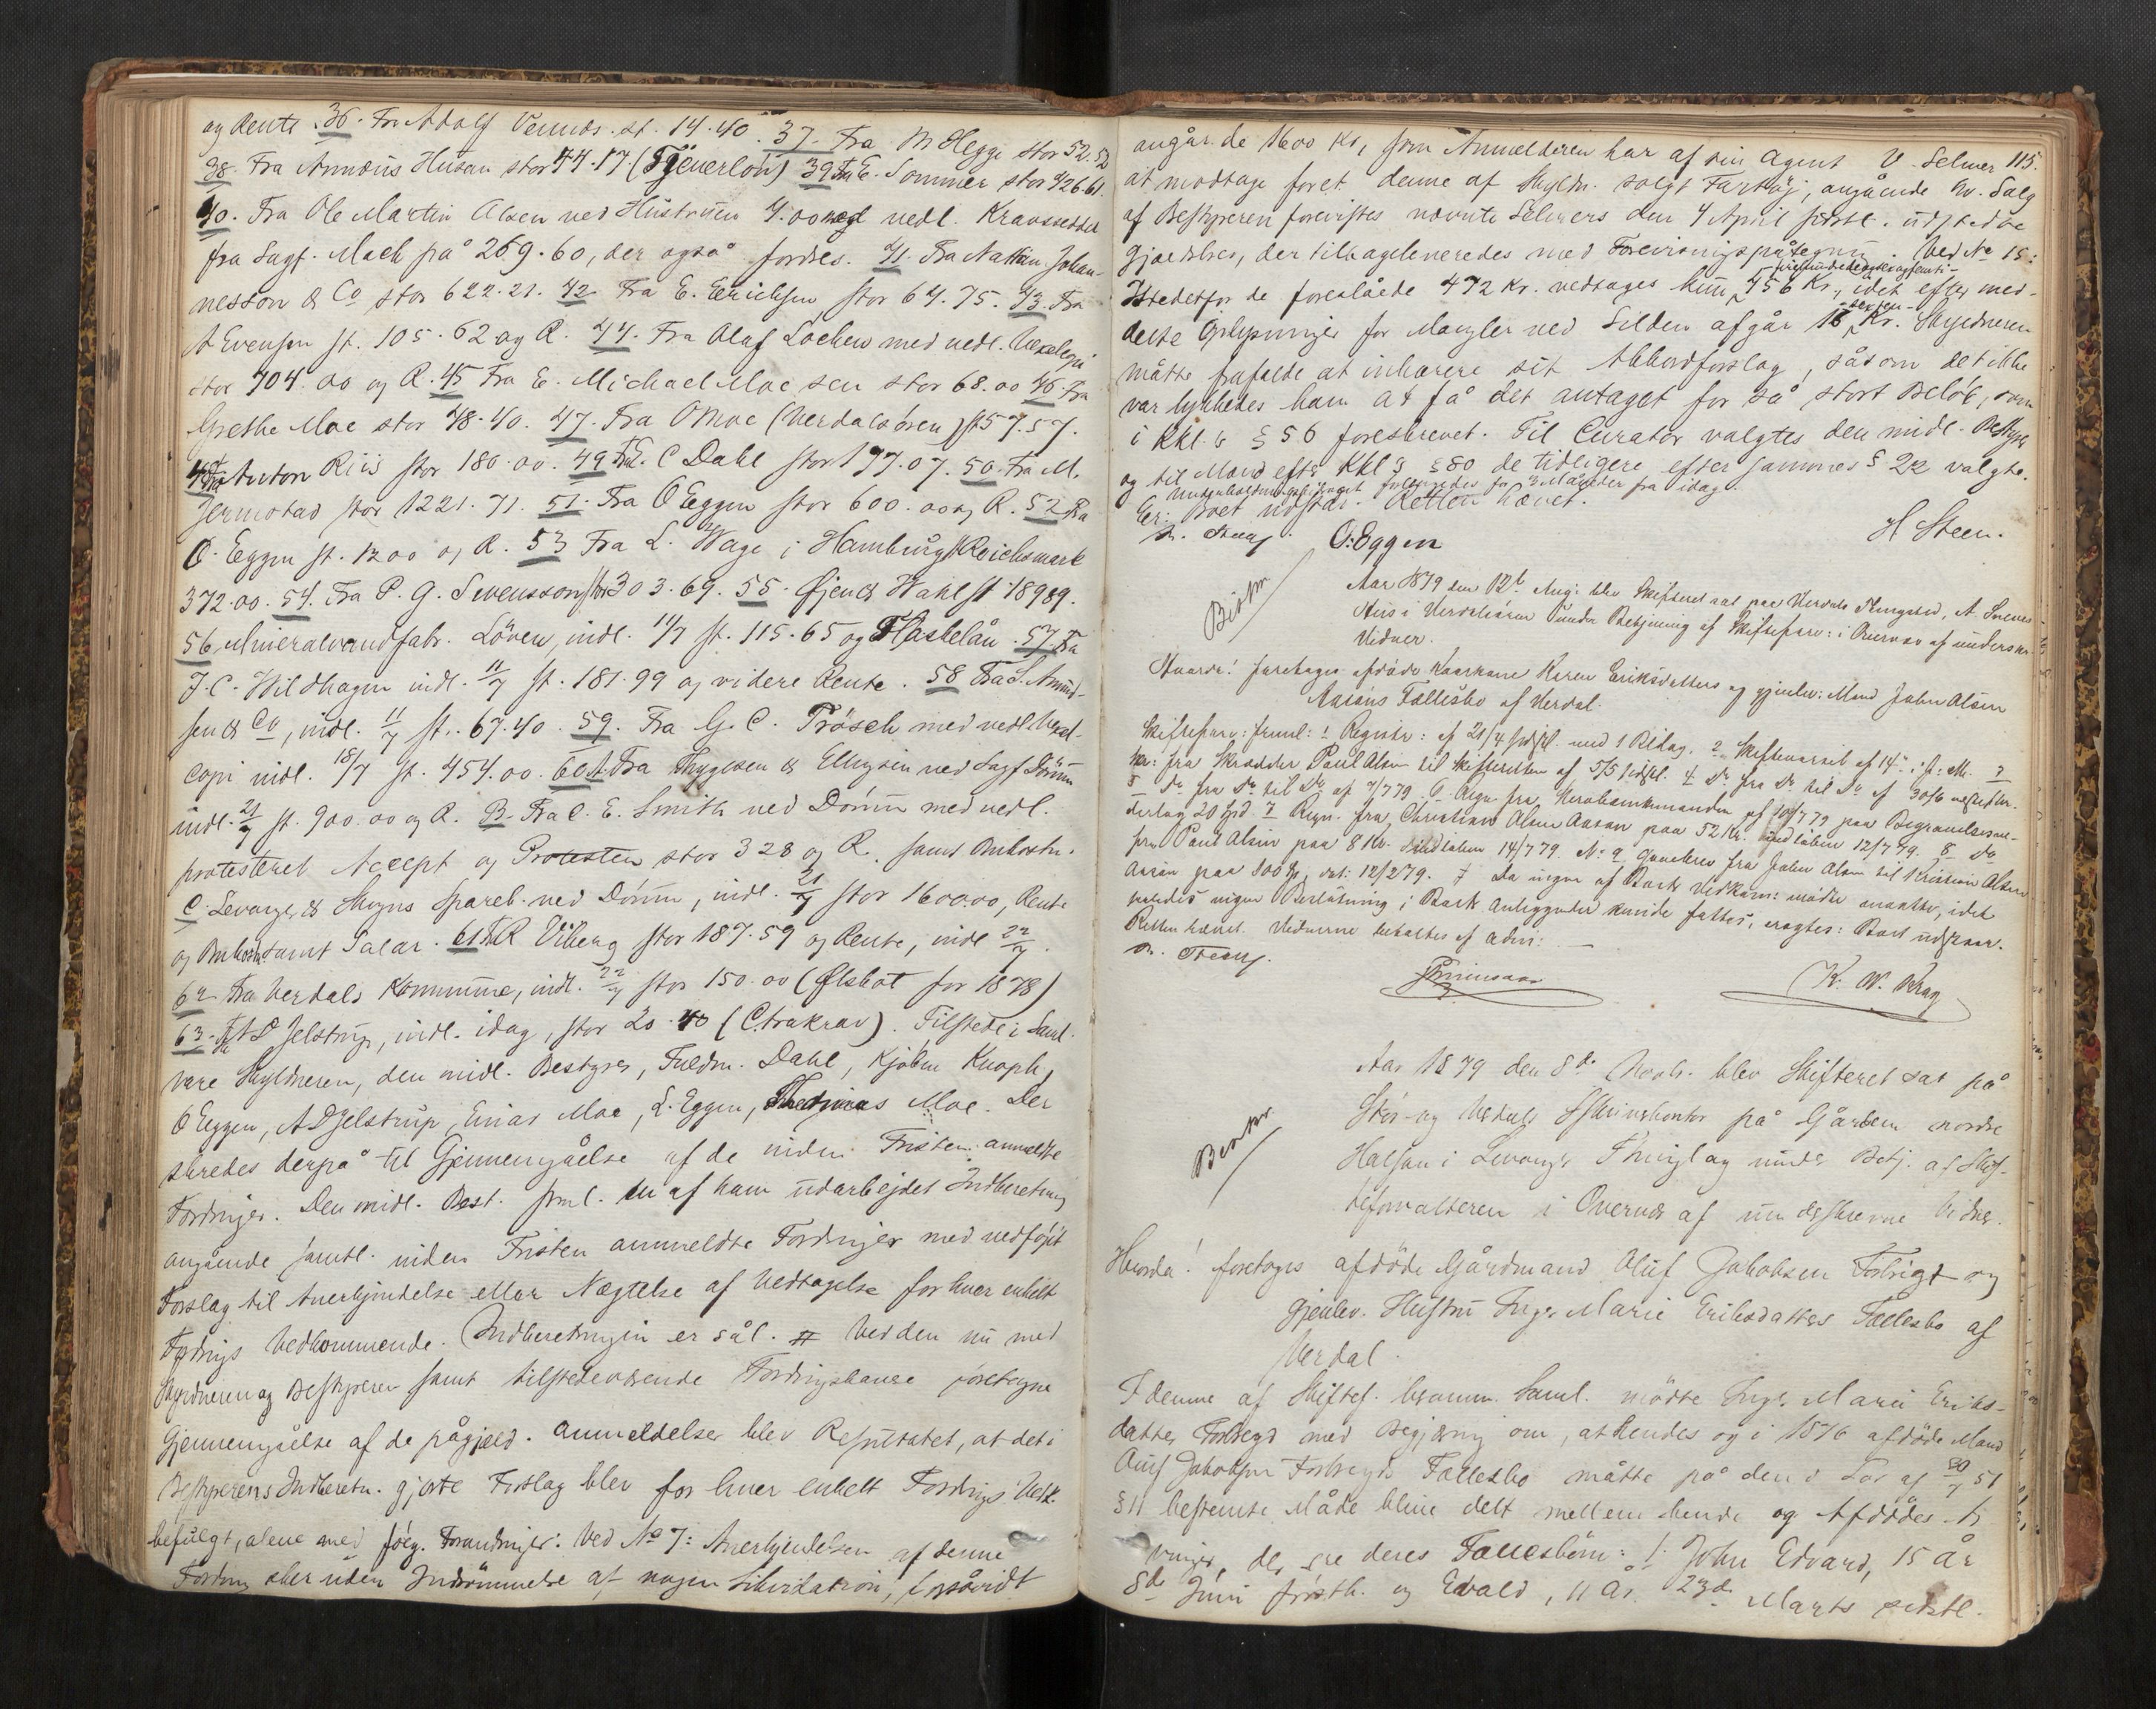 og Rente. 36. Fra Adolf Vennds. st. 14.40. 37. Fra M Hegge stor 52.50
38. Fra Annæus Husan stor 44.17 (Tjenerløn) 39 Fra E. Sommer stor 426.61.
40. Fra Ole Martin Olsen ved Hustruen 4.00 med vedl. Kravsseddel
fra Sagf. Mach på 269.60, der også fordres. 41. Fra Nathan Johan-
nesson & Co stor 622.21. 42 Fra E. Erichsen stor 64.75. 43. Fra
A Evensen st. 105.62 og R. 44. Fra Olaf Lochen med vedl. Vexelcopi
stor 404.00 og R. 45 Fra E. Michael Moe sen stor 68.00 46. Fra
Grethe Moe stor 48.40. 47. Fra O Moe (Verdalsøren) st 57.57.
48 Fra Anton Riis stor 180.00. 49 Fra L. C Dahl stor 197.07. 50. Fra M.
Jermstad stor 1221.71. 51. Fra O Eggen stor 600.00 og R. 52 Fra
O. Eggen st. 1200 og R. 53 Fra L. Wage i Hamburg st Reichsmark
372.00. 54. Fra P. G. Svensson stor 303.69. 55. Øjen & Wahl st 189.89.
56, Mineralvandfabr. Löven, indl. 11/7 st. 115.65 og Flaskelån. 57. Fra
J. C. Wildhagen indl. 11/7 st. 181.99 og videre Rente. 58 Fra S. Amund-
sen & Co, indl. 11/7 st. 67.40. 59. Fra G. C. Trösch med vedl. Vexel-
copi indl. 18/7 st. 454.00. 60 A. Fra Thygesen & Ellingsen ved Sagf Dømm
indl. 21/7 st. 900.00 og R. B. Fra C. E. Smith ved Dømm med vedl.
protesteret Accept og Protesten stor 328 og R. samt Omkostn.
C. Levanger & Skogns Spareb. ved Dømm, indl. 21/7 stor 1600.00, Rente
og Omkostn. samt Salar. 61 Fra R Viberg stor 187.59 og Rente, indl 22/7.
62 Fra Verdals Kommune, indl. 22/7 stor 150.00 (Ølskat for 1878)
63. Fra A D Jelstrup, indl. idag, stor 20.40 (Ctrakrav). Tilstede i Saml.
vare Skyldneren, den midl. Bestyrer, Fuldm. Dahl, Kjøbm Knoph,
O Eggen, A D Jelstrup, Einar Moe, L. Eggen, Moe. Der
skredes derpå til Gjennemgåelse af de inden Fristen anmeldte
Fordringer. Den midl. Best. freml. en af ham udarbejdet Indberetning
angående samtl. inden Fristen anmeldte Fordringer med vedføjet
Forslag til Anerkjendelse eller Nægtelse af Vedtagelse for hver enkelt
Fordrings Vedkommende. Indberetningen er sål. # Ved den nu med
Skyldneren og Bestyreren samt tilstedeværende Fordringshavere foretagne
Gjennemgåelse af de pågjæld. anmeldelser blev Resultatet, at det i
Bestyrerens Indberetn. gjorte Forslag blev for hver enkelt Fordrings Vedk.
befulgt, alene med følg. Forandringer: Ved No 7: Anerkjendelsen af denne
Fordring sker uden Indrømmelse af nogen Likvidation, forsåvidt
115.
angår de 1600 Kr, som Anmelderen har af sin Agent V. Selmer
at modtage foret denne af Skyldn. solgt Fartøj, angående hv. Salg
af Bestyreren forevistes nævnte Selmers den 4 April sidstl. udstedte
Gjældsbrev, der tilbageleveredes med Forevisningspåtegning. Ved No 15:
Istedetfor de foreslåede 472 Kr. vedtages kun 456 Kr., idet efter med-
firehundredesexogfemti-
delte Oplysninger for Mangler ved Silden afgår 16 Kr. Skyldneren
-sexten-
måtte frafalde at inhærere sit Akkordforslag, såsom det ikke
var lykkedes ham at få det antaget for så stort Beløb, som
i Kkl. § 56 foreskrevet. Til Curator valgtes den midl. Bestyrer
og til Mand efter Kkl § 80 de tidligere efter sammes § 22 valgte.
Underholdningsbidraget forlænges for 3 Måneder fra idag.
Er: Boet udstår. Retten hævet.
O: Eggen
H Steen.
Aar 1879 den 12t Aug: blev Skifteret sat paa Verdals Thingsted, A. Svenes
Huus i Verdalsøren under Betjening af Skifteforv: i Overvær af underskr.
Vidner.
Hvorda! foretoges afdøde Kaarkone Karen Eriksdatters og gjenlev: Mand John Olsen
Aasens Fællesbo af Verdal.
Skifteforv: freml: 1 Registr: af 21/4 sidstl. med 1 Bilag. 2 Skiftevarsel af 14de i f: M. 3
Skr: fra Skrædder Paul Olsen til Skifteretten af 5/5 sidstl. 4 Do fra Do til Do af 30/6
5 Do fra Do til Do af 7/7 79. 6 Regn fra af 10/7 79 paa Begravelsesun-
derlag 20 Spd. 7 Regn. fra Christian Olsen Aasan paa 52 Kr. indløben 12/7 79. 8 Do
fra Paul Olsen paa 8 Kr. indløben 14/7 79. No: 9 Gavebrev fra John Olsen til Kristian Olsen
Aasan paa 800 Kr, dat: 12/2 79. Da ingen af Boets Vedkom: mødte
saaledes ingen Beslutning i Boet Anliggender kunde fattes, eragtes: Boet udstaar.
Retten hævet. Vidnerne betaltes af Adm: —
K. W. Krag
Aar 1879 den 8de Novbr. blev Skifteret sat på
Stør- og Verdals Sskriverkontor på Gården nordre
Halsan i Levangers Thinglag under Betj. af Skif-
teforvalteren i Overvær af underskrevne Vidner.
Hvorda! foretoges afdøde Gårdmand Oluf Jakobsen Forbrigt og
Gjenlev. Hustru Inger Marie Eriksdatters Fællesbo af
Verdal.
I denne af Skiftef. beramm. Saml. mødte Inger Marie Eriks-
datter Forbregd med Begjæring om, at Hendes og i 1876 afdøde Mand
Oluf Jakobsen Forbregds Fællesbo måtte på den i Lov af 30/7 51
§ 11 bestemte Måde blive delt mellem hende og Afdødes Ar-
vinger, der ere deres Fællesbørn: 1. John Edvard, 15 år
8de Juni førstk. og Edvald, 11 År 23de Marts sidstl.